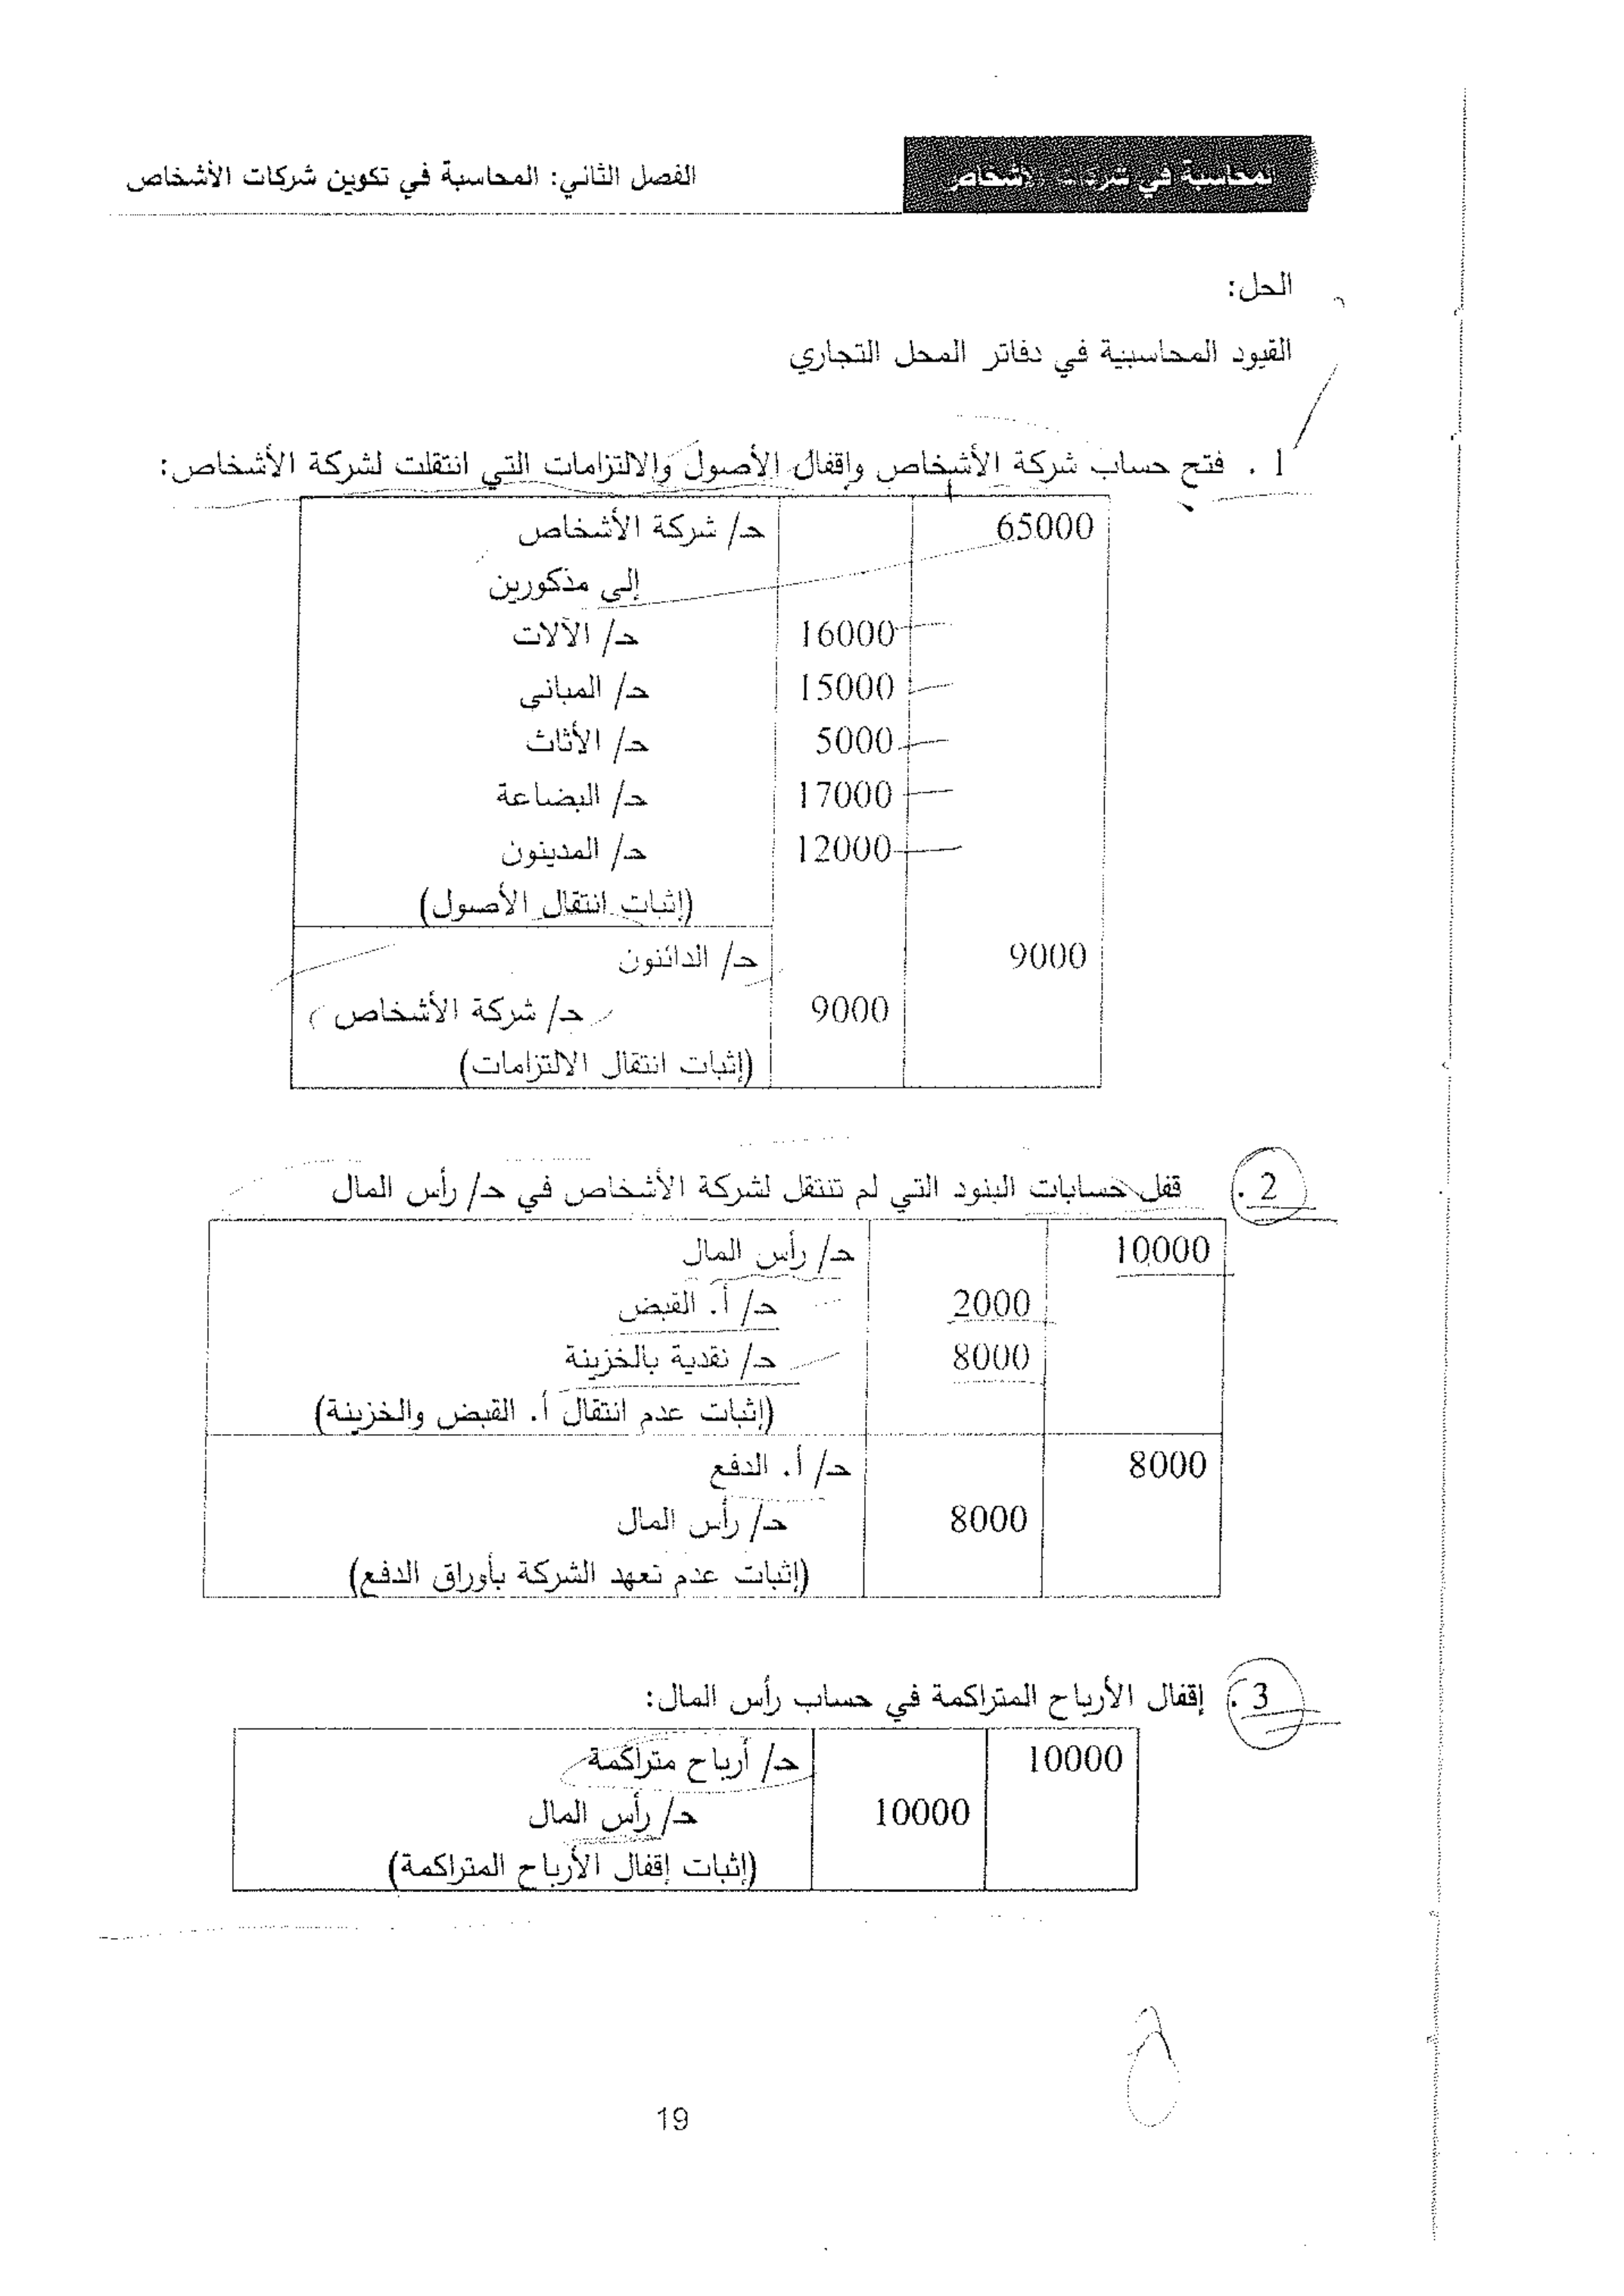 المحاسبة في شركات الأشخاص
الفصل الثاني: المحاسبة في تكوين شركات الأشخاص
الحل:
القيود المحاسبية في دفاتر المحل التجاري
1 . فتح حساب شركة الأشخاص وإقفال الأصول والالتزامات التي انتقلت لشركة الأشخاص:
65000 حـ/ شركة الأشخاص
إلى مذكورين
16000 حـ/ الآلات
15000 حـ/ المبانى
5000 حـ/ الأثاث
17000 حـ/ البضاعة
12000 حـ/ المدينون
(إثبات انتقال الأصول)
9000 حـ/ الدائنون
9000 حـ/ شركة الأشخاص
(إثبات انتقال الالتزامات)
2. قفل حسابات البنود التي لم تنتقل لشركة الأشخاص في حـ/ رأس المال
10000 حـ/ رأس المال
2000 حـ/ أ. القبض
8000 حـ/ نقدية بالخزينة
(إثبات عدم انتقال أ. القبض والخزينة)
8000 حـ/ أ. الدفع
8000 حـ/ رأس المال
(إثبات عدم تعهد الشركة بأوراق الدفع)
3. إقفال الأرباح المتراكمة في حساب رأس المال:
10000 حـ/ أرباح متراكمة
10000 حـ/ رأس المال
(إثبات إقفال الأرباح المتراكمة)
19